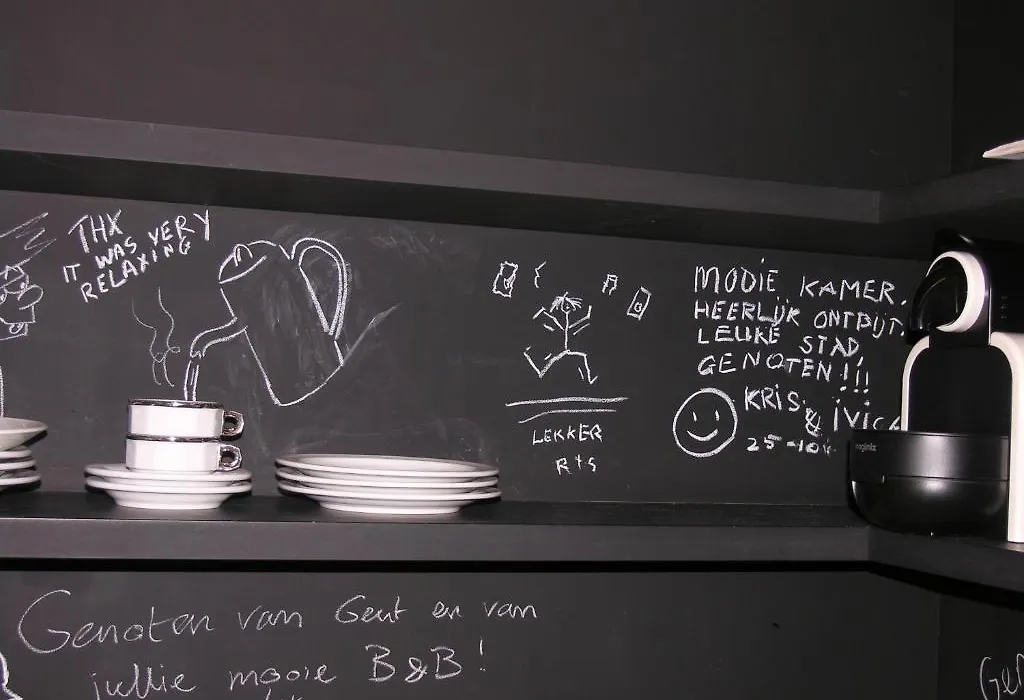 THX
IT WAS VERY
RELAXING
LEKKER
R+S
MOOIE KAMER.
HEERLIJK ONTBIJT.
LEUKE STAD,
GENOTEN!!!
KRIS
& IVICA
25-10
magimix
Genoten van Gent en van
jullie mooie B&B!